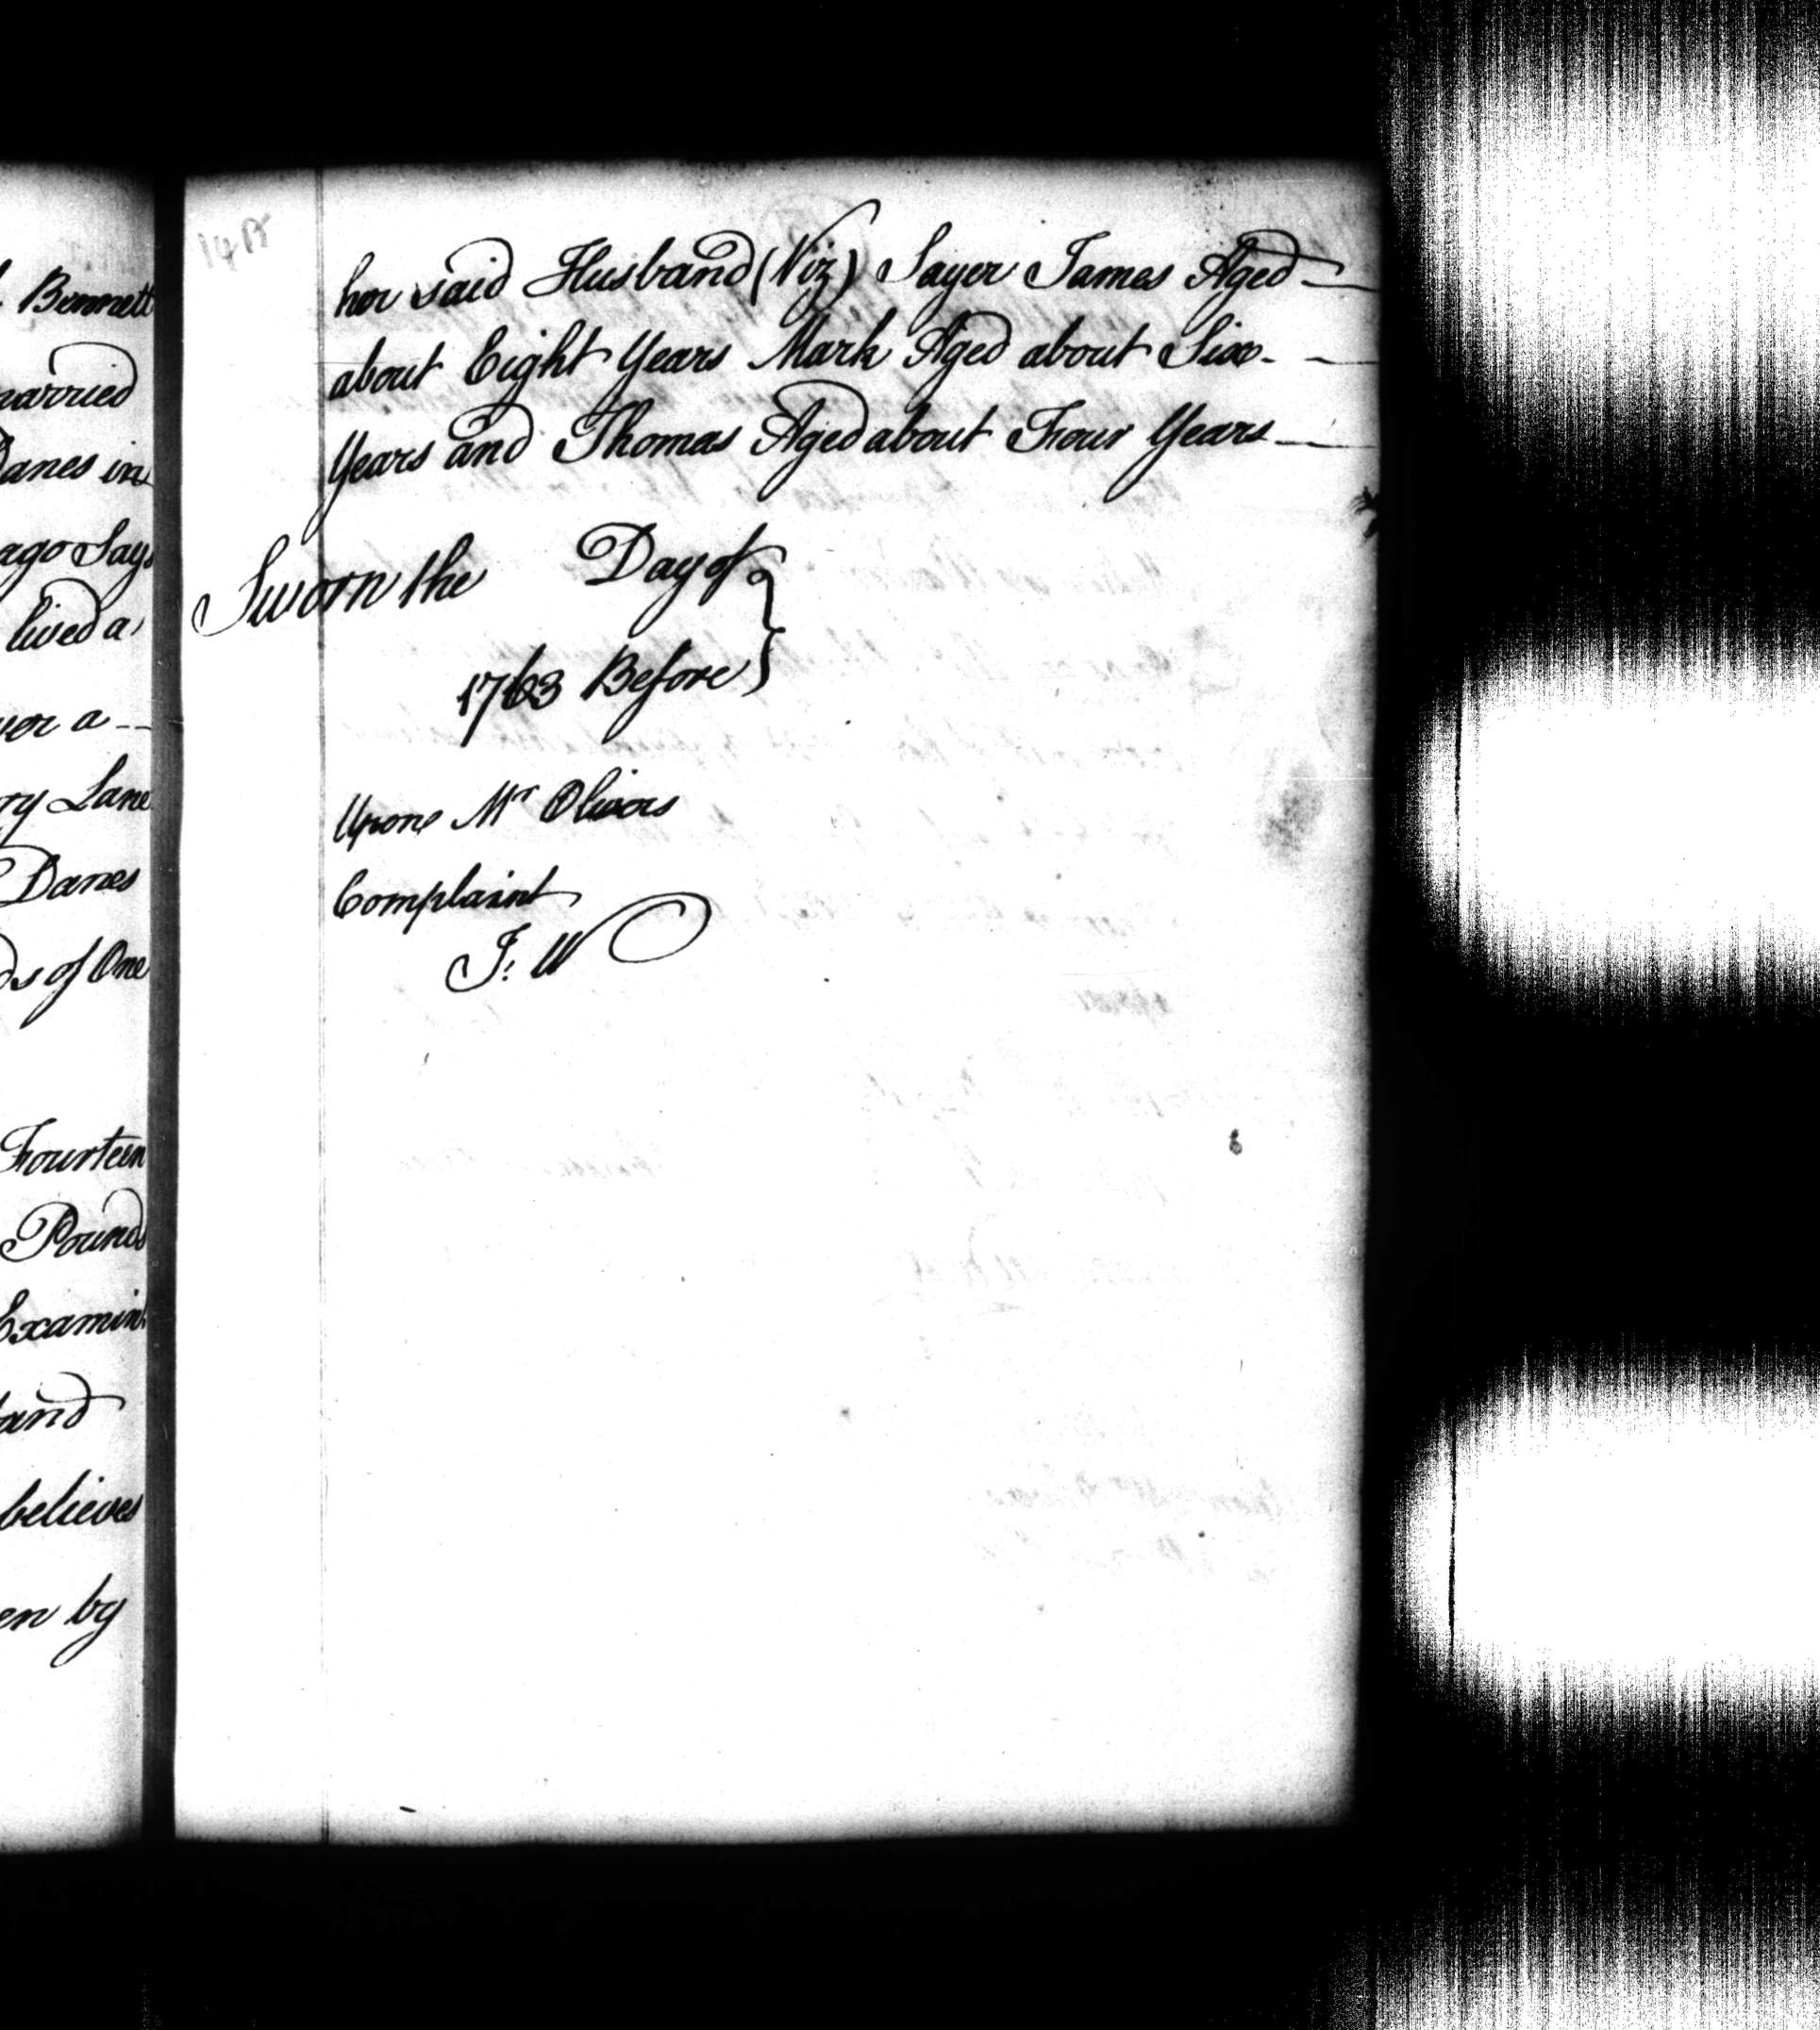 l Bennett
married
Danes in
ago Says
lived a
yer a --
ry Lane
Danes
ds of One
Fourteen
Pounds
Examint
and
believes
en by
her said Husband (Viz) Sayer James Aged —
about Eight Years Mark Aged about Six - —
Years and Thomas Aged about Four Years —
Sworn the Day of
1763 Before
Upone Mr Olivers
Complaint
J: W